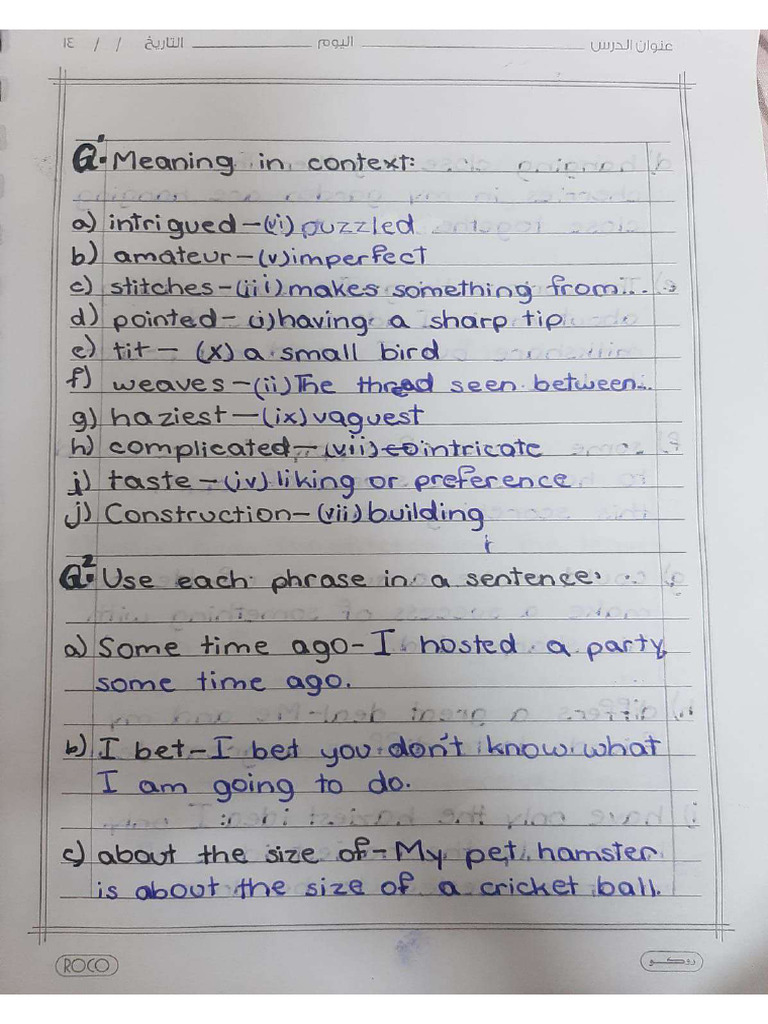 عنوان الدرس اليوم التاريخ / / ١٤
Q1. Meaning in context:
a) intrigued – (vi) puzzled
b) amateur – (v) imperfect
c) stitches – (iii) makes something from...
d) pointed – (i) having a sharp tip
e) tit – (x) a small bird
f) weaves – (ii) The thread seen between...
g) haziest – (ix) vaguest
h) complicated – (vii) intricate
i) taste – (iv) liking or preference
j) Construction – (vii) building
Q2. Use each phrase in a sentence:
a) Some time ago – I hosted a party
some time ago.
b) I bet – I bet you don't know what
I am going to do.
c) about the size of – My pet hamster
is about the size of a cricket ball.
ROCO روكو